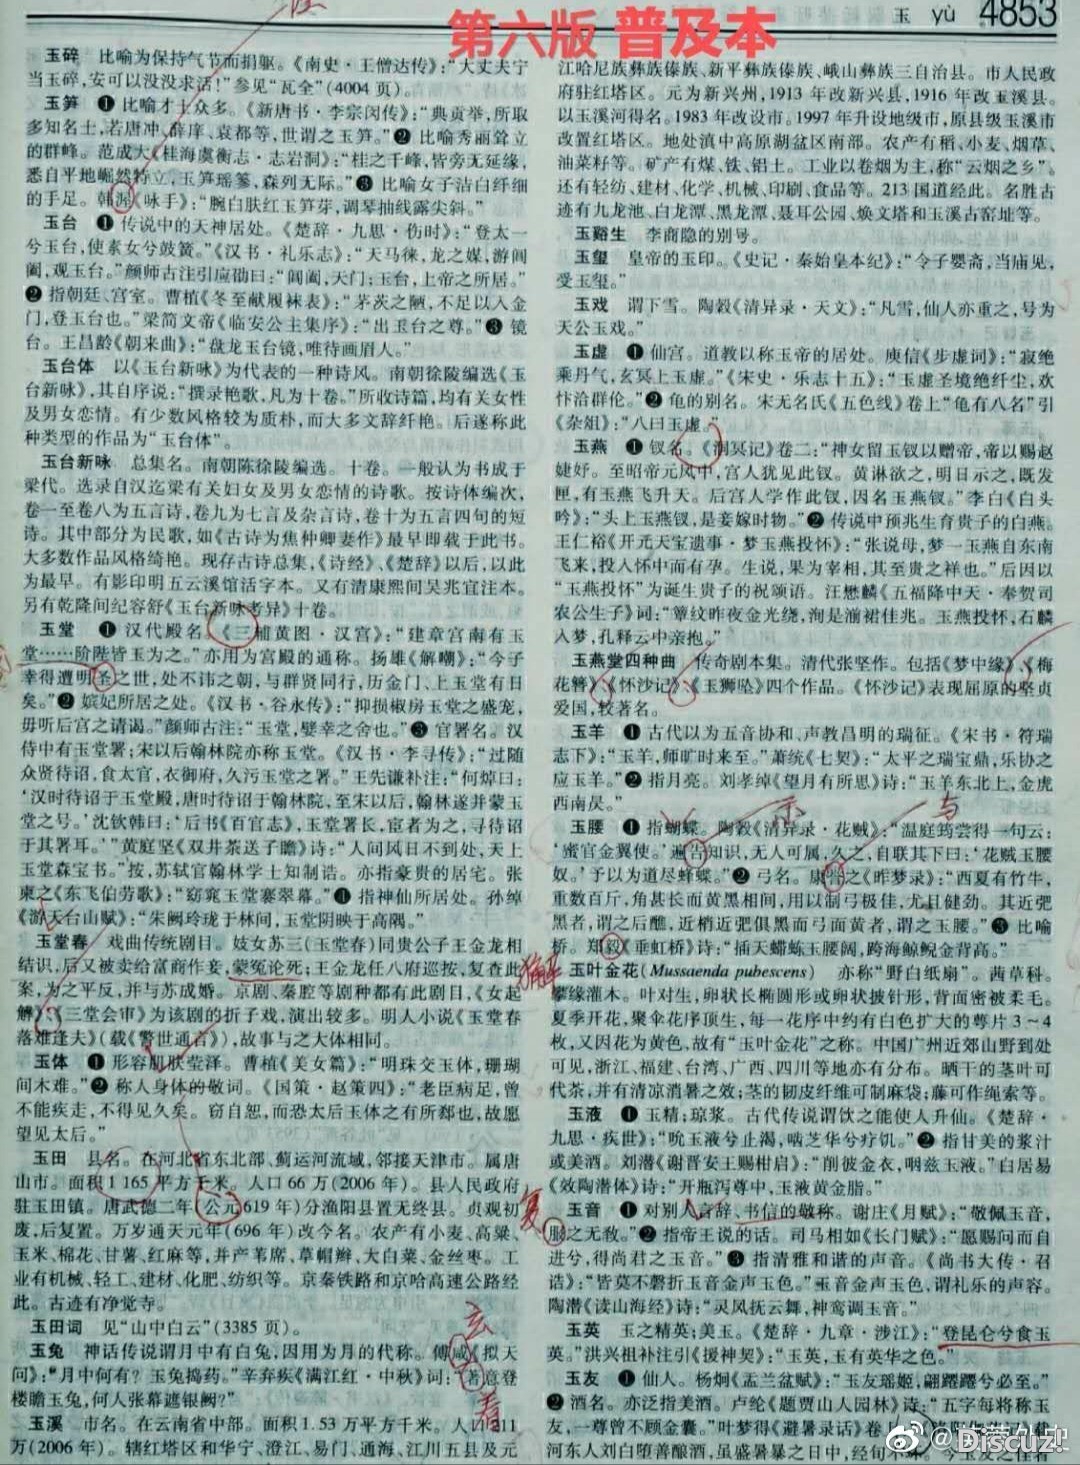 玉 yù 4853
第六版 普及本
玉碎 比喻为保持气节而捐躯。《南史·王僧达传》:“大丈夫宁
当玉碎,安可以没没求活!”参见“瓦全”(4004页)。
玉笋 ❶比喻才士众多。《新唐书·李宗闵传》:“典贡举,所取
多知名士,若唐冲、薛庠、袁都等,世谓之玉笋。”❷比喻秀丽耸立
的群峰。范成大《桂海虞衡志·志岩洞》:“桂之千峰,皆旁无延缘,
悉自平地崛然特立,玉笋瑶篸,森列无际。”❸比喻女子洁白纤细
的手足。韩渥《咏手》:“腕白肤红玉笋芽,调琴抽线露尖斜。”
玉台 ❶传说中的天神居处。《楚辞·九思·伤时》:“登太一
兮玉台,使素女兮鼓簧。”《汉书·礼乐志》:“天马徕,龙之媒,游阊
阖,观玉台。”颜师古注引应劭曰:“阊阖,天门;玉台,上帝之所居。”
❷指朝廷、宫室。曹植《冬至献履袜表》:“茅茨之陋,不足以入金
门,登玉台也。”梁简文帝《临安公主集序》:“出玉台之尊。”❸镜
台。王昌龄《朝来曲》:“盘龙玉台镜,唯待画眉人。”
玉台体 以《玉台新咏》为代表的一种诗风。南朝徐陵编选《玉
台新咏》,其自序说:“撰录艳歌,凡为十卷。”所收诗篇,均有关女性
及男女恋情。有少数风格较为质朴,而大多文辞纤艳。后遂称此
种类型的作品为“玉台体”。
玉台新咏 总集名。南朝陈徐陵编选。十卷。一般认为书成于
梁代。选录自汉迄梁有关妇女及男女恋情的诗歌。按诗体编次,
卷一至卷八为五言诗,卷九为七言及杂言诗,卷十为五言四句的短
诗。其中部分为民歌,如《古诗为焦仲卿妻作》最早即载于此书。
大多数作品风格绮艳。现存古诗总集,《诗经》、《楚辞》以后,以此
为最早。有影印明五云溪馆活字本。又有清康熙间吴兆宜注本。
另有乾隆间纪容舒《玉台新咏考异》十卷。
玉堂 ❶汉代殿名。《三辅黄图·汉宫》:“建章宫南有玉
堂……阶陛皆玉为之。”亦用为宫殿的通称。扬雄《解嘲》:“今子
幸得遭明圣之世,处不讳之朝,与群贤同行,历金门、上玉堂有日
矣。”❷嫔妃所居之处。《汉书·谷永传》:“抑损椒房玉堂之盛宠,
毋听后宫之请谒。”颜师古注:“玉堂,嬖幸之舍也。”❸官署名。汉
侍中有玉堂署;宋以后翰林院亦称玉堂。《汉书·李寻传》:“过随
众贤待诏,食太官,衣御府,久污玉堂之署。”王先谦补注:“何焯曰:
‘汉时待诏于玉堂殿,唐时待诏于翰林院,至宋以后,翰林遂并蒙玉
堂之号。’沈钦韩曰:‘后书《百官志》,玉堂署长,宦者为之,寻待诏
于其署耳。’”黄庭坚《双井茶送子瞻》诗:“人间风日不到处,天上
玉堂森宝书。”按,苏轼官翰林学士知制诰。亦指豪贵的居宅。张
柬之《东飞伯劳歌》:“窈窕玉堂褰翠幕。”❹指神仙所居处。孙绰
《游天台山赋》:“朱阙玲珑于林间,玉堂阴映于高隅。”
玉堂春 戏曲传统剧目。妓女苏三(玉堂春)同贵公子王金龙相
结识,后又被卖给富商作妾,蒙冤论死;王金龙任八府巡按,复查此
案,为之平反,并与苏成婚。京剧、秦腔等剧种都有此剧目,《女起
解》、《三堂会审》为该剧的折子戏,演出较多。明人小说《玉堂春
落难逢夫》(载《警世通言》),故事与之大体相同。
玉体 ❶形容肌肤莹泽。曹植《美女篇》:“明珠交玉体,珊瑚
间木难。”❷称人身体的敬词。《国策·赵策四》:“老臣病足,曾
不能疾走,不得见久矣。窃自恕,而恐太后玉体之有所郄也,故愿
望见太后。”
玉田 县名。在河北省东北部、蓟运河流域,邻接天津市。属唐
山市。面积1 165平方千米。人口66万(2006年)。县人民政府
驻玉田镇。唐武德二年(公元619年)分渔阳县置无终县。贞观初
废,后复置。万岁通天元年(696年)改今名。农产有小麦、高粱、
玉米、棉花、甘薯、红麻等,并产苇席,草帽辫,大白菜、金丝枣。工
业有机械、轻工、建材、化肥、纺织等。京秦铁路和京哈高速公路经
此。古迹有净觉寺。
玉田词 见“山中白云”(3385页)。
玉兔 神话传说谓月中有白兔,因用为月的代称。傅咸《拟天
问》:“月中何有?玉兔捣药。”辛弃疾《满江红·中秋》词:“著意登
楼瞻玉兔,何人张幕遮银阙?”
玉溪 市名。在云南省中部。面积1.53万平方千米。人口211
万(2006年)。辖红塔区和华宁、澄江、易门、通海、江川五县及元
江哈尼族彝族傣族、新平彝族傣族、峨山彝族三自治县。市人民政
府驻红塔区。元为新兴州,1913年改新兴县,1916年改玉溪县。
以玉溪河得名。1983年改设市。1997年升设地级市,原县级玉溪市
改置红塔区。地处滇中高原湖盆区南部。农产有稻、小麦、烟草、
油菜籽等。矿产有煤、铁、铝土。工业以卷烟为主,称“云烟之乡”。
还有轻纺、建材、化学、机械、印刷、食品等。213国道经此。名胜古
迹有九龙池、白龙潭、黑龙潭、聂耳公园、焕文塔和玉溪古窑址等。
玉谿生 李商隐的别号。
玉玺 皇帝的玉印。《史记·秦始皇本纪》:“令子婴斋,当庙见,
受玉玺。”
玉戏 谓下雪。陶穀《清异录·天文》:“凡雪,仙人亦重之,号为
天公玉戏。”
玉虚 ❶仙宫。道教以称玉帝的居处。庾信《步虚词》:“寂绝
乘丹气,玄冥上玉虚。”《宋史·乐志十五》:“玉虚圣境绝纤尘,欢
忭洽群伦。”❷龟的别名。宋无名氏《五色线》卷上“龟有八名”引
《杂俎》:“八曰玉虚。”
玉燕 ❶钗名。《洞冥记》卷二:“神女留玉钗以赠帝,帝以赐赵
婕妤。至昭帝元凤中,宫人犹见此钗。黄淋欲之,明日示之,既发
匣,有玉燕飞升天。后宫人学作此钗,因名玉燕钗。”李白《白头
吟》:“头上玉燕钗,是妾嫁时物。”❷传说中预兆生育贵子的白燕。
王仁裕《开元天宝遗事·梦玉燕投怀》:“张说母,梦一玉燕自东南
飞来,投入怀中而有孕。生说,果为宰相,其至贵之祥也。”后因以
“玉燕投怀”为诞生贵子的祝颂语。汪懋麟《五福降中天·奉贺司
农公生子》词:“簟纹昨夜金光绕,洵是湔裙佳兆。玉燕投怀,石麟
入梦,孔释云中亲抱。”
玉燕堂四种曲 传奇剧本集。清代张坚作。包括《梦中缘》、《梅
花簪》、《怀沙记》、《玉狮坠》四个作品。《怀沙记》表现屈原的坚贞
爱国,较著名。
玉羊 ❶古代以为五音协和、声教昌明的瑞征。《宋书·符瑞
志下》:“玉羊,师旷时来至。”萧统《七契》:“太平之瑞宝鼎,乐协之
应玉羊。”❷指月亮。刘孝绰《望月有所思》诗:“玉羊东北上,金虎
西南昃。”
玉腰 ❶指蝴蝶。陶穀《清异录·花贼》:“温庭筠尝得一句云:
‘蜜官金翼使。’遍告知识,无人可属,久之,自联其下曰:‘花贼玉腰
奴。’予以为道尽蜂蝶。”❷弓名。康誉之《昨梦录》:“西夏有竹牛,
重数百斤,角甚长而黄黑相间,用以制弓极佳,尤且健劲。其近弝
黑者,谓之后醮,近梢近弝俱黑而弓面黄者,谓之玉腰。”❸比喻
桥。郑毅《垂虹桥》诗:“插天螮蝀玉腰阔,跨海鲸鲵金背高。”
玉叶金花(Mussaenda pubescens) 亦称“野白纸扇”。茜草科。
攀缘灌木。叶对生,卵状长椭圆形或卵状披针形,背面密被柔毛。
夏季开花,聚伞花序顶生,每一花序中约有白色扩大的萼片3~4
枚,又因花为黄色,故有“玉叶金花”之称。中国广州近郊山野到处
可见,浙江、福建、台湾、广西、四川等地亦有分布。晒干的茎叶可
代茶,并有清凉消暑之效;茎的韧皮纤维可制麻袋;藤可作绳索等。
玉液 ❶玉精;琼浆。古代传说谓饮之能使人升仙。《楚辞·
九思·疾世》:“吮玉液兮止渴,啮芝华兮疗饥。”❷指甘美的浆汁
或美酒。刘潜《谢晋安王赐柑启》:“削彼金衣,咽兹玉液。”白居易
《效陶潜体》诗:“开瓶泻尊中,玉液黄金脂。”
玉音 ❶对别人言辞、书信的敬称。谢庄《月赋》:“敬佩玉音,
服之无斁。”❷指帝王说的话。司马相如《长门赋》:“愿赐问而自
进兮,得尚君之玉音。”❸指清雅和谐的声音。《尚书大传·召
诰》:“皆莫不磬折玉音金声玉色。”玉音金声玉色,谓礼乐的声容。
陶潜《读山海经》诗:“灵风抚云舞,神鸾调玉音。”
玉英 玉之精英;美玉。《楚辞·九章·涉江》:“登昆仑兮食玉
英。”洪兴祖补注引《援神契》:“玉英,玉有英华之色。”
玉友 ❶仙人。杨炯《盂兰盆赋》:“玉友瑶姬,翩躚躚兮必至。”
❷酒名。亦泛指美酒。卢纶《题贾山人园林》诗:“五字每将称玉
友,一尊曾不顾金囊。”叶梦得《避暑录话》卷
河东人刘白堕善酿酒,虽盛暑暴之日中,经旬不坏。今玉友之佳者
示
与
猜解
复
玄
看
Discuz!